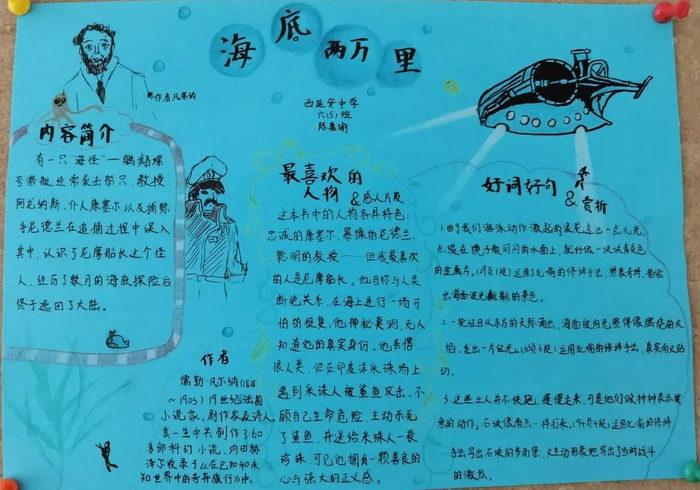 海底两万里
西延安中学
六(5)班
陈嘉瑜
内容简介
有一只“海怪”——鹦鹉螺
号潜艇经常袭击船只,教授
阿龙纳斯、仆人康塞尔以及捕鲸
手尼德兰在追捕过程中误入
其中,认识了尼摩船长这个怪
人,经历了数月的海底探险后
终于逃回了大陆。
作者
儒勒·凡尔纳(1828
~1905)19世纪法国
小说家、剧作家及诗人
其一生中共创作了60
多部科幻小说,均由赫
泽尔收录于《在已知和未
知世界中的奇异旅行》中。
最喜欢的
人物
&感人片段
这本书中的人物各具特色:
忠诚的康塞尔、暴躁的尼德兰、
聪明的教授……但我最喜欢
的人是尼摩船长。他自称与人类
断绝关系,在海上进行一场可
怕的报复;他神秘莫测,无人
知道他的真实身份。他虽恨
很人类,但在印度洋采珠场上
遇到采珠人被鲨鱼攻击,不
顾自己生命危险,主动杀死
了鲨鱼,并送给采珠人一袋
珍珠,可见他拥有一颗善良的
心与强大的正义感。
好词好句
&赏析
运用比喻的修辞手法
出海面波光粼粼的景色。
2.一轮红日从东方的天际涌出,海面被阳光照得像燃烧的火
3.这些土人并不快跑,慢慢走来,可是他们做种种表示敌
意的动作。石块像雨点一样打来。
手法写出了石块的多而密,又生动形象地写出了当时战斗
的激烈。